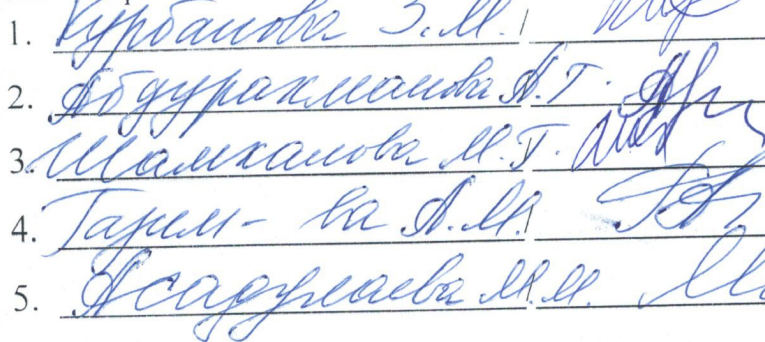 1. Курбанова З.М.
2. Абдурахманова А.Г.
3. Шамханова М.Г.
4. Гаджи-ва А.М.
5. Асадулаева М.М.